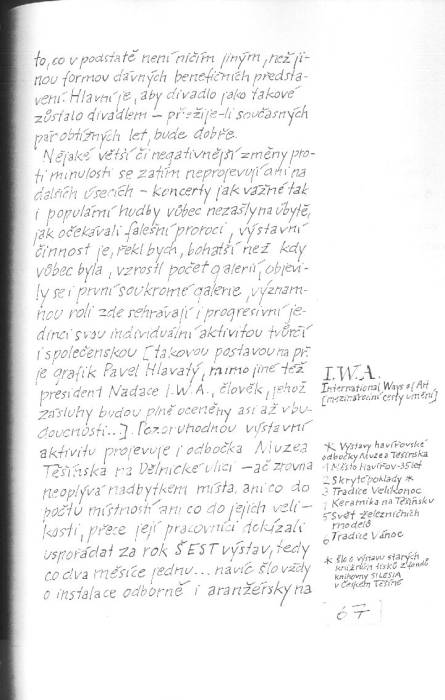 to, co v podstatě není ničím jiným, než ji-
nou formou dávných benefičních předsta-
vení. Hlavní je, aby divadlo jako takové
zůstalo divadlem – přežije-li současných
pár obtížných let, bude dobře.
Nějaké větší či negativnější změny pro-
ti minulosti se zatím neprojevují ani na
dalších úsecích – koncerty jak vážné tak
i populární hudby vůbec nezašly na úbytě,
jak očekávali falešní proroci, výstavní
činnost je, řekl bych, bohatší než kdy
vůbec byla, vzrostl počet galerií, objevi-
ly se i první soukromé galerie, význam-
nou roli zde sehrávají i progresivní je-
dinci svou individuální aktivitou tvůrčí
i společenskou [takovou postavou na př.
je grafik Pavel Hlavatý, mimo jiné též
president Nadace I.W.A., člověk, jehož
zásluhy budou plně oceněny asi až v bu-
doucnosti...]. Pozoruhodnou výstavní
aktivitu projevuje i odbočka Muzea
Těšínska na Dělnické ulici – ač zrovna
neoplývá nadbytkem místa, ani co do
počtu místností ani co do jejich veli-
kosti, přece její pracovníci dokázali
uspořádat za rok ŠEST výstav, tedy
co dva měsíce jednu... navíc šlo vždy
o instalace odborně i aranžérsky na
I.W.A.
International Ways of Art
[mezinárodní cesty umění]
* Výstavy havířovské
odbočky Muzea Těšínska
1 Město Havířov-35let
2 Skryté poklady *
3 Tradice Velikonoc
4 Keramika na Těšínsku
5 Svět železničních
modelů
6 Tradice Vánoc
* šlo o výstavu starých
knižních tisků z fondů
knihovny SILESIA
v Českém Těšíně
[67]